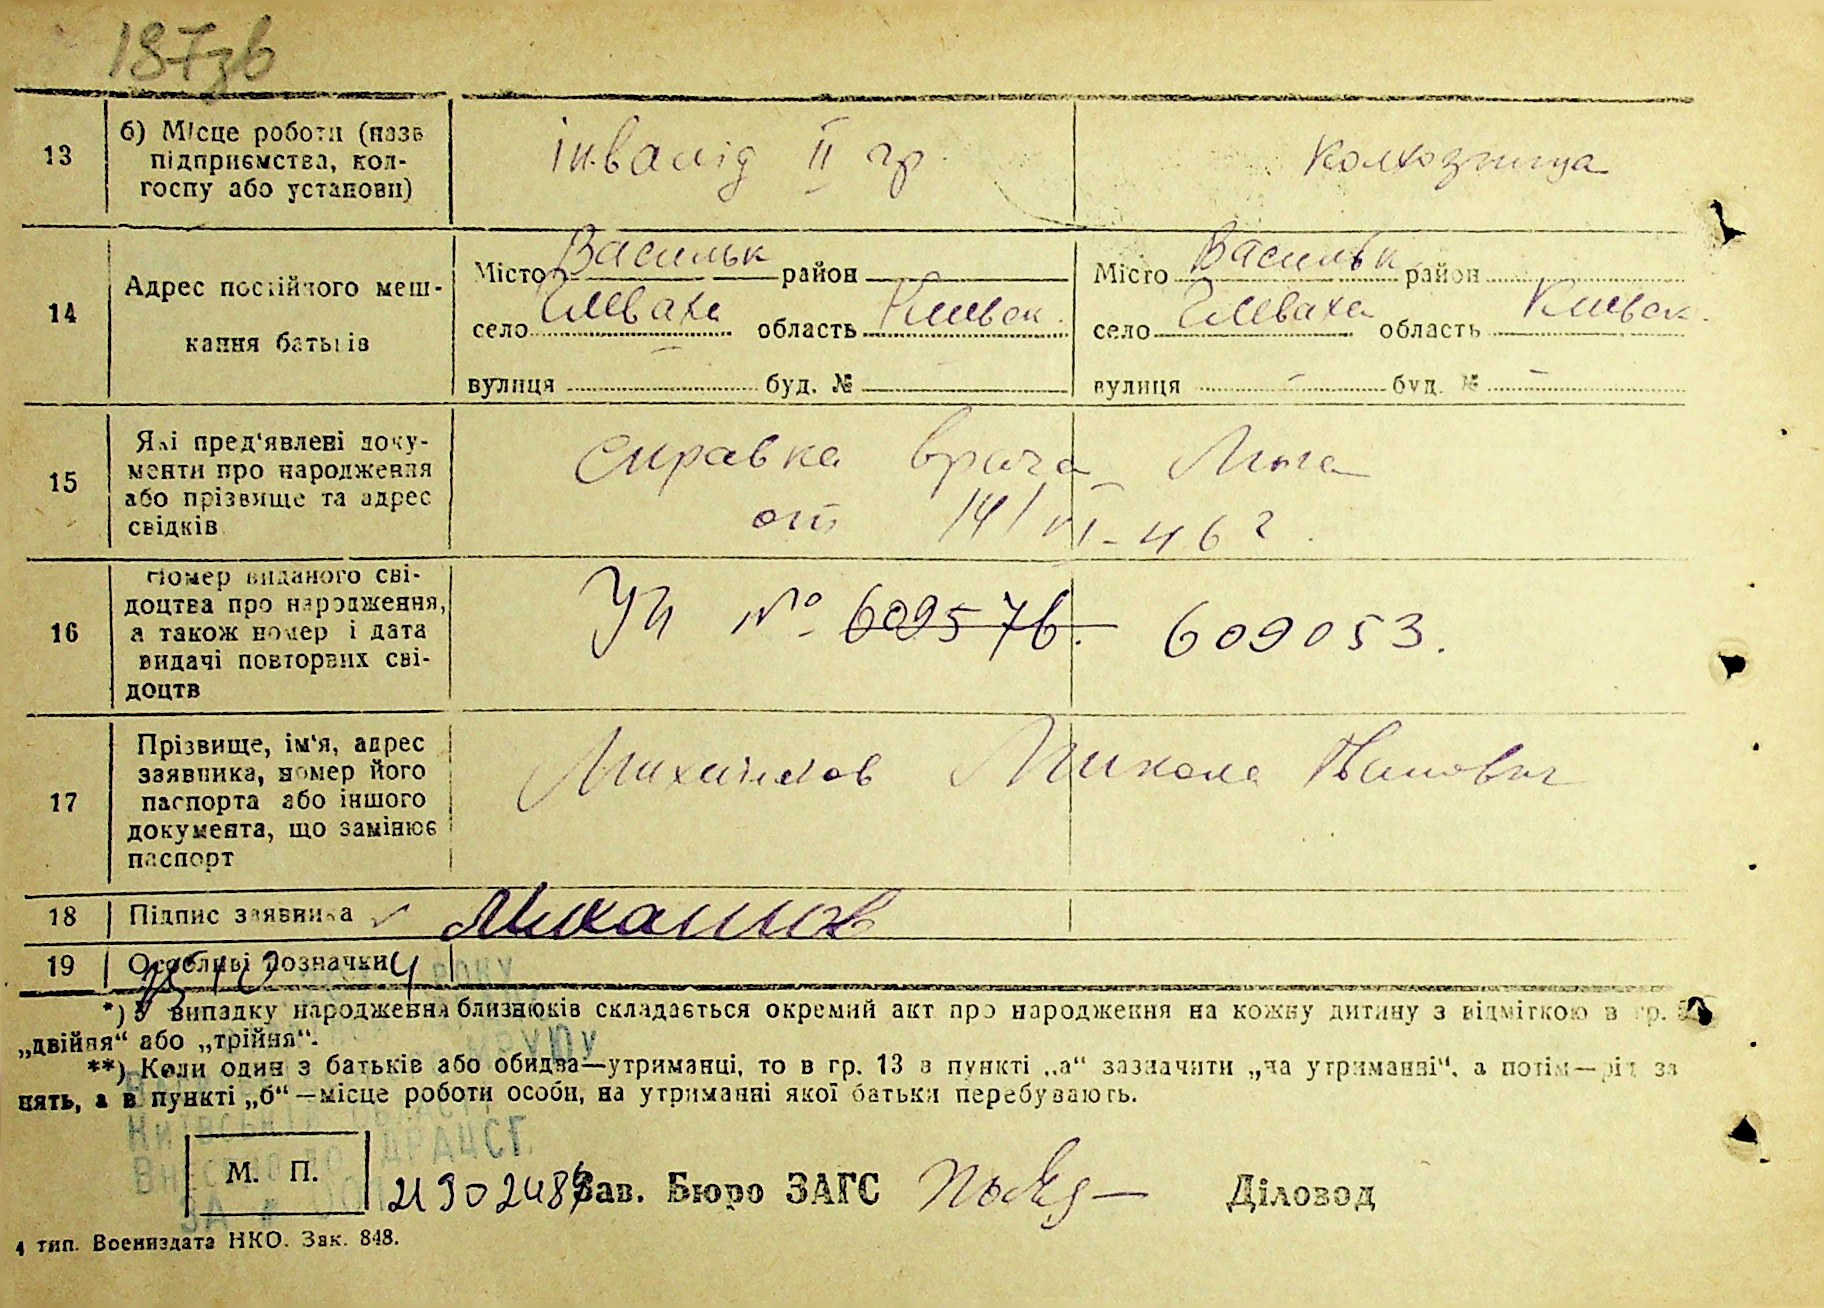 187зв
13
б) Місце роботи (назв
підприємства, кол-
госпу або установи)
інвалід II гр.
колхозница
14
Адрес постійного меш-
кання батьків
Місто Васильк район
село Глеваха область Киевск.
вулиця буд. №
Місто Васильк район
село Глеваха область Киевск.
вулиця – буд. № –
15
Які пред'явлені доку-
менти про народження
або прізвище та адрес
свідків
справка врача
от 14/VI-46 г.
16
Номер виданого сві-
доцтва про народження,
а також номер і дата
видачі повторних сві-
доцтв
УИ № 609576. 609053.
17
Прізвище, ім'я, адрес
заявника, номер його
паспорта або іншого
документа, що замінює
паспорт
Михайлов Микола Іванович
18
Підпис заявника
Михайлов
19
Особливі позначки
*) У випадку народження близнюків складається окремий акт про народження на кожну дитину з відміткою в гр. 5
„двійня“ або „трійня“.
**) Коли один з батьків або обидва—утриманці, то в гр. 13 в пункті „а“ зазначити „на утриманні“, а потім—рід за
нять, а в пункті „б“—місце роботи особи, на утриманні якої батьки перебувають.
М. П.
Зав. Бюро ЗАГС
Діловод
4 тип. Воениздата НКО. Зак. 848.